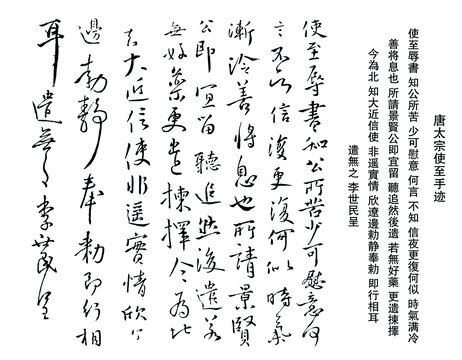 唐太宗使至手迹
使至辱書 知公所苦 少可慰意 何言 不知 信夜更復何似 時氣满冷
善将息也 所請景賢公即宜留 聽追然後遣 若無好藥 更遣揀擇
今為北 知大近信使 非遥實情 欣遼邊勅静奉勅 即行相耳
遣無之 李世民呈
使至辱書知公所苦少可慰意何
言不信復更復何似時氣
漸冷善将息也所請景賢
公即宜留聽追然後遣若
無好藥更遣揀擇今為北
知大近信使非遥實情欣
邊勅静奉勅即行相
耳遣無之李世民呈